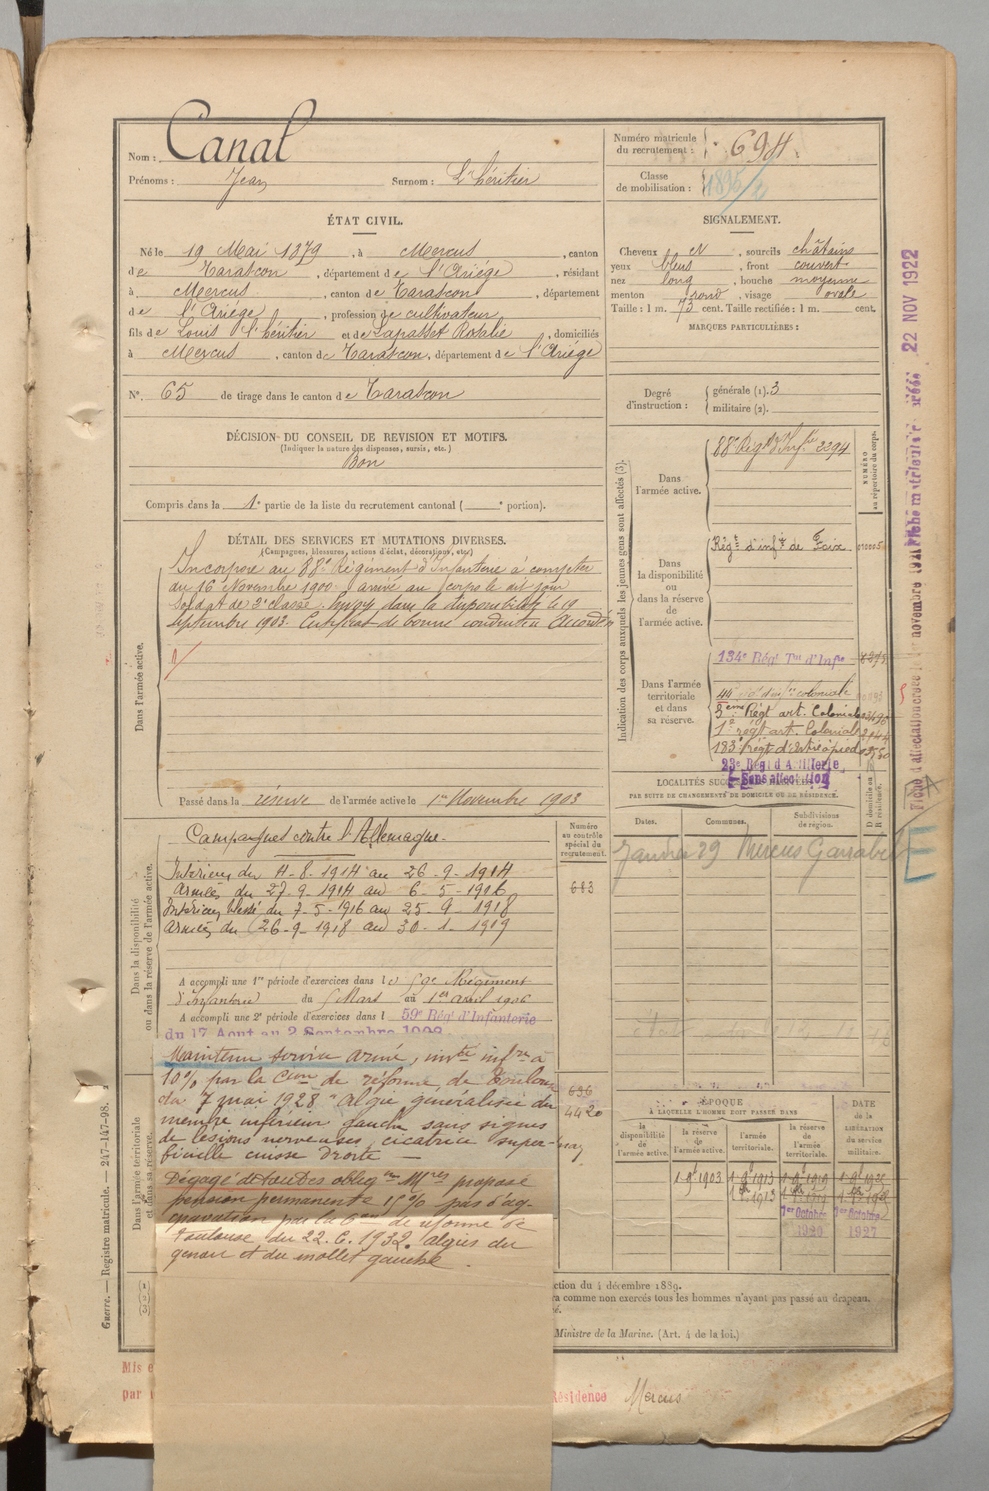 Nom : Canal
Prénoms : Jean Surnom : L'héritier
Numéro matricule du recrutement : 694
Classe de mobilisation : 1895/
ÉTAT CIVIL.
Né le 19 Mai 1879, à Mercus, canton
de Tarascon, département de l'Ariège, résidant
à Mercus, canton de Tarascon, département
de l'Ariège, profession de cultivateur
fils de Louis l'héritier et de Lapasset Rosalie, domiciliés
à Mercus, canton de Tarascon, département de l'Ariège
N° 65 de tirage dans le canton de Tarascon
DÉCISION DU CONSEIL DE REVISION ET MOTIFS.
(Indiquer la nature des dispenses, sursis, etc.)
Bon
Compris dans la 1e partie de la liste du recrutement cantonal ( e portion).
SIGNALEMENT.
Cheveux N, sourcils châtains
yeux bleus, front couvert
nez long, bouche moyenne
menton rond, visage ovale
Taille : 1 m. 73 cent. Taille rectifiée : 1 m. cent.
MARQUES PARTICULIÈRES :
Degré d'instruction : générale (1). 3
militaire (2).
DÉTAIL DES SERVICES ET MUTATIONS DIVERSES.
(Campagnes, blessures, actions d'éclat, décorations, etc.)
Dans l'armée active.
Incorporé au 88e Régiment d'Infanterie à compter
du 16 Novembre 1900. arrivé au corps le dit jour
soldat de 2e classe. Envoyé dans la disponibilité le 19
septembre 1903. Certificat de bonne conduite Accordé
Passé dans la réserve de l'armée active le 1er Novembre 1903
Indication des corps auxquels les jeunes gens sont affectés (3).
NUMÉRO au répertoire du corps.
Dans l'armée active.
88e Régt d'Inf.ie 2294
Dans la disponibilité ou dans la réserve de l'armée active.
Régt d'inf.ie de Foix
Dans l'armée territoriale et dans sa réserve.
134e Régt Tal d'Infie
44e d'infie coloniale
3eme Régt art. Coloniale
1e régt art. Coloniale
183e Régt d'artie à pied
23e Régt d'Artillerie
Sans affectation
LOCALITÉS SUCC
PAR SUITE DE CHANGEMENTS DE DOMICILE OU DE RÉSIDENCE.
Dates. Communes. Subdivisions de région. D domicile ou R résidence.
Janvier 29 Mercus Garrabet
Dans la disponibilité ou dans la réserve de l'armée active.
Numéro au contrôle spécial du recrutement.
683
Campagnes contre l'Allemagne.
Intérieur du 4-8-1914 au 26-9-1914
Armées du 27-9-1914 au 6-5-1916
Intérieur blessé du 7-5-1916 au 25-9-1918
Armées du 26-9-1918 au 30-1-1919
A accompli une 1re période d'exercices dans le 59e Régiment
d'Infanterie du 5 Mars au 1er avril 1906
A accompli une 2e période d'exercices dans l 59e Rég' d'Infanterie
du 17 Aout au 2 Septembre
Dans l'armée territoriale et dans sa réserve.
Maintenu service armé, invté infre à
10% par la Cion de réforme de Toulouse
du 7 mai 1928 "algie généralisée du
membre inférieur gauche sans signes
de lésions nerveuses, cicatrice super-
ficielle cuisse droite
Dégagé de toutes obligons Mres proposé
pension permanente 15% pas d'ag-
gravation par la Con de réforme de
Toulouse du 22.6.1932. algies du
genou et du mollet gauche.
636
4420
ÉPOQUE
À LAQUELLE L'HOMME DOIT PASSER DANS
la disponibilité de l'armée active. la réserve de l'armée active. l'armée territoriale. la réserve de l'armée territoriale.
DATE de la LIBÉRATION du service militaire.
1er Octobre 1920
1er Octobre 1927
ction du 4 décembre 1889.
ra comme non exercés tous les hommes n'ayant pas passé au drapeau.
Ministre de la Marine. (Art. 4 de la loi.)
Mis e
par
Résidence Mercus
Guerre. — Registre matricule. — 247-147-98.
22 NOV 1922